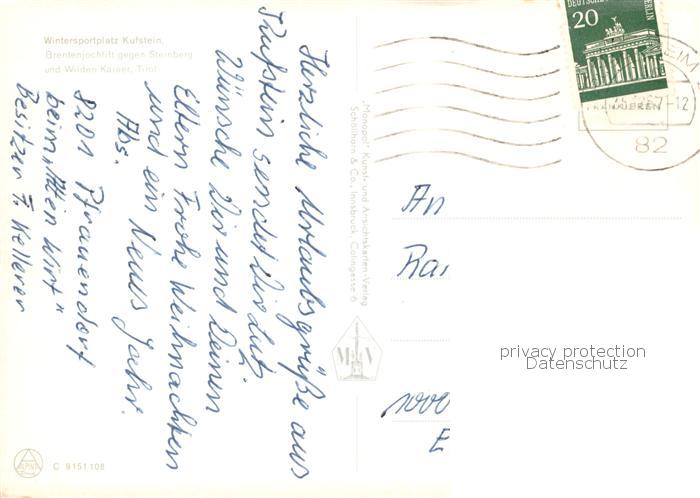 Wintersportplatz Kufstein,
Brentenjochlift gegen Steinberg
und Wilden Kaiser, Tirol
Herzliche Urlaubsgrüße aus
Kufstein sendet Dir Lutz.
Wünsche Dir und Deinen
Eltern Frohe Weihnachten
und ein Neues Jahr.
Abs.
8201 Pfraundorf
beim „Alten Wirt"
Besitzer F. Kellerer
"Monopol" Kunst- und Ansichtskarten-Verlag
Schöllhorn & Co., Innsbruck, Colingasse 6
DEUTSCHE
BERLIN
20
-12
82
An
1000
privacy protection
Datenschutz
ALPINE
C 9151108